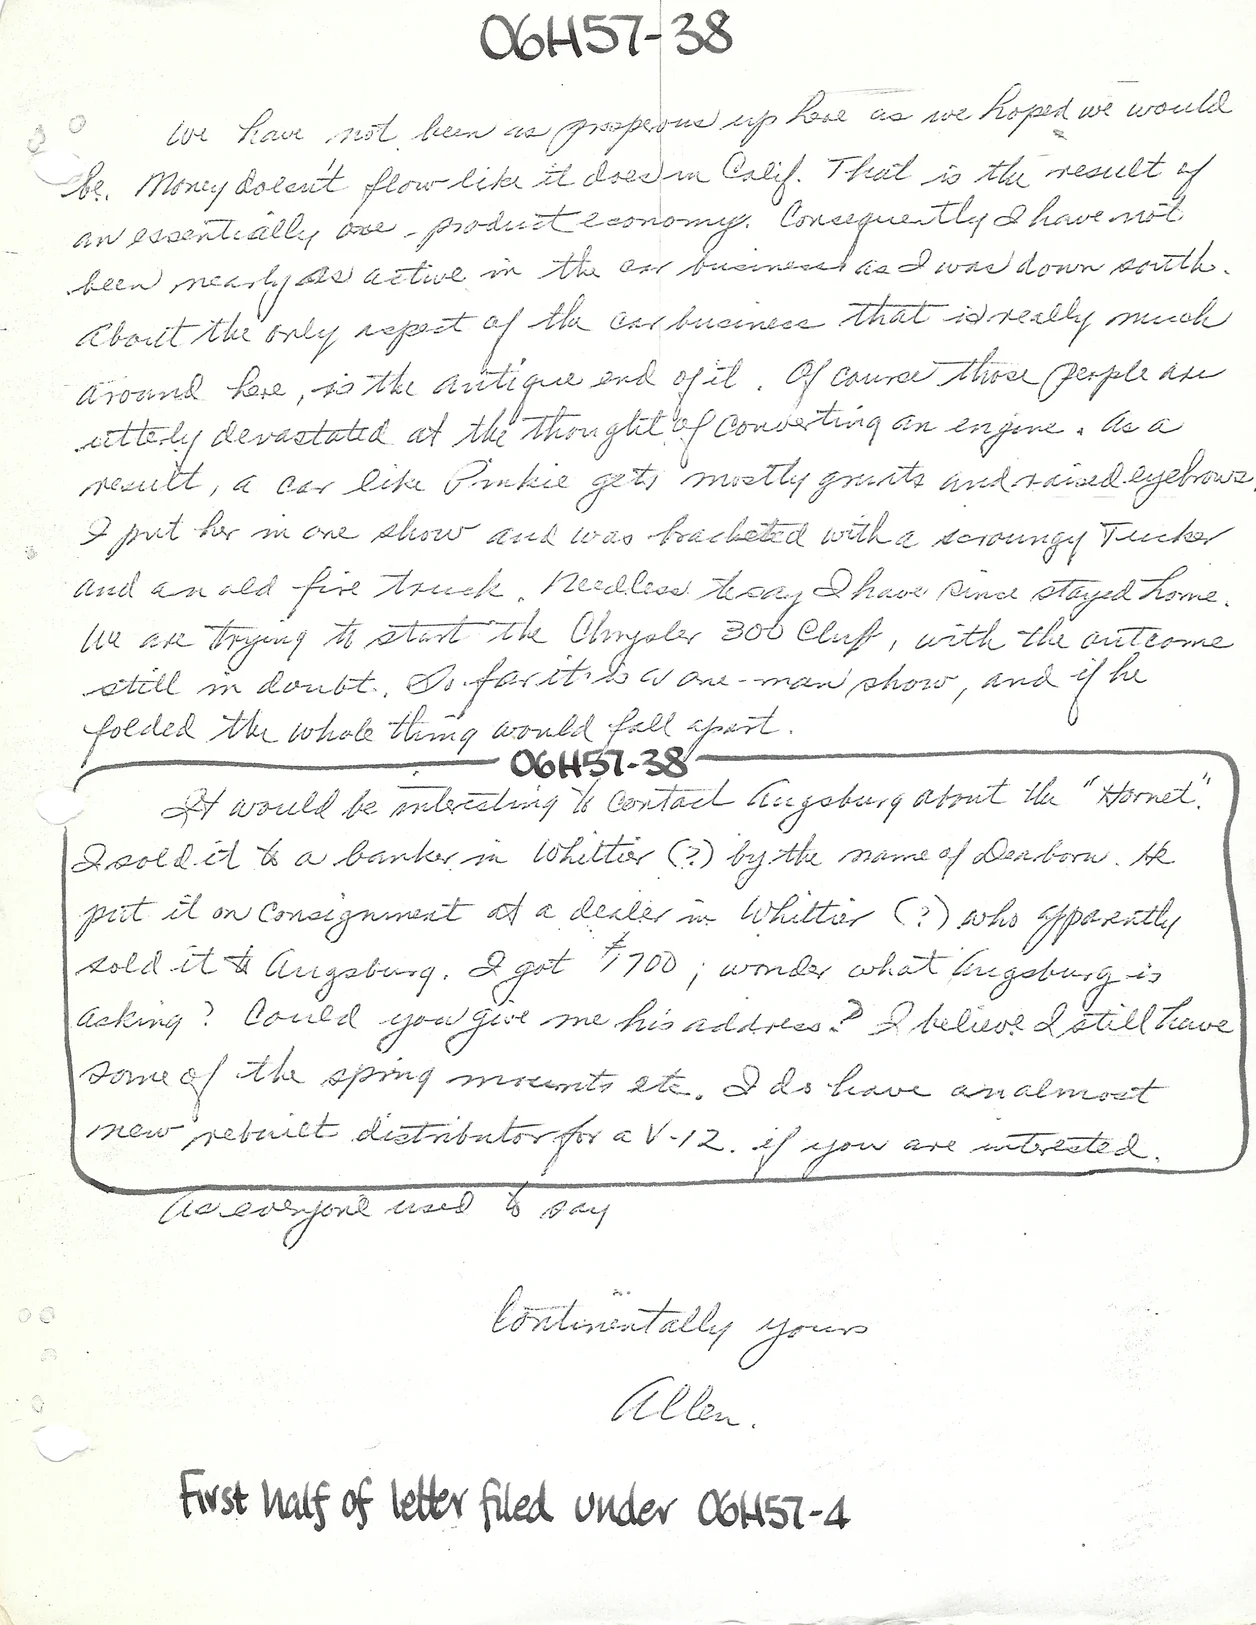 06H57-38
We have not been as prosperous up here as we hoped we would
be. Money doesn't flow like it does in Calif. That is the result of
an essentially one-product economy. Consequently I have not
been nearly as active in the car business as I was down south.
About the only aspect of the car business that is really much
around here, is the antique end of it. Of course those people are
utterly devastated at the thought of converting an engine. As a
result, a car like Pinkie gets mostly grunts and raised eyebrows.
I put her in one show and was bracketed with a scroungy Tucker
and an old fire truck. Needless to say I have since stayed home.
We are trying to start the Chrysler 300 Club, with the outcome
still in doubt. So far it is a one-man show, and if he
folded the whole thing would fall apart.
06H57-38
It would be interesting to contact Augsburg about the "Hornet".
I sold it to a banker in Whittier (?) by the name of Dearborn. He
put it on consignment at a dealer in Whittier (?) who apparently
sold it to Augsburg. I got $1700; wonder what Augsburg is
asking? Could you give me his address? I believe I still have
some of the spring mounts etc. I do have an almost
new rebuilt distributor for a V-12. if you are interested.
As everyone used to say
Continentally yours
Allen.
First half of letter filed under 06H57-4